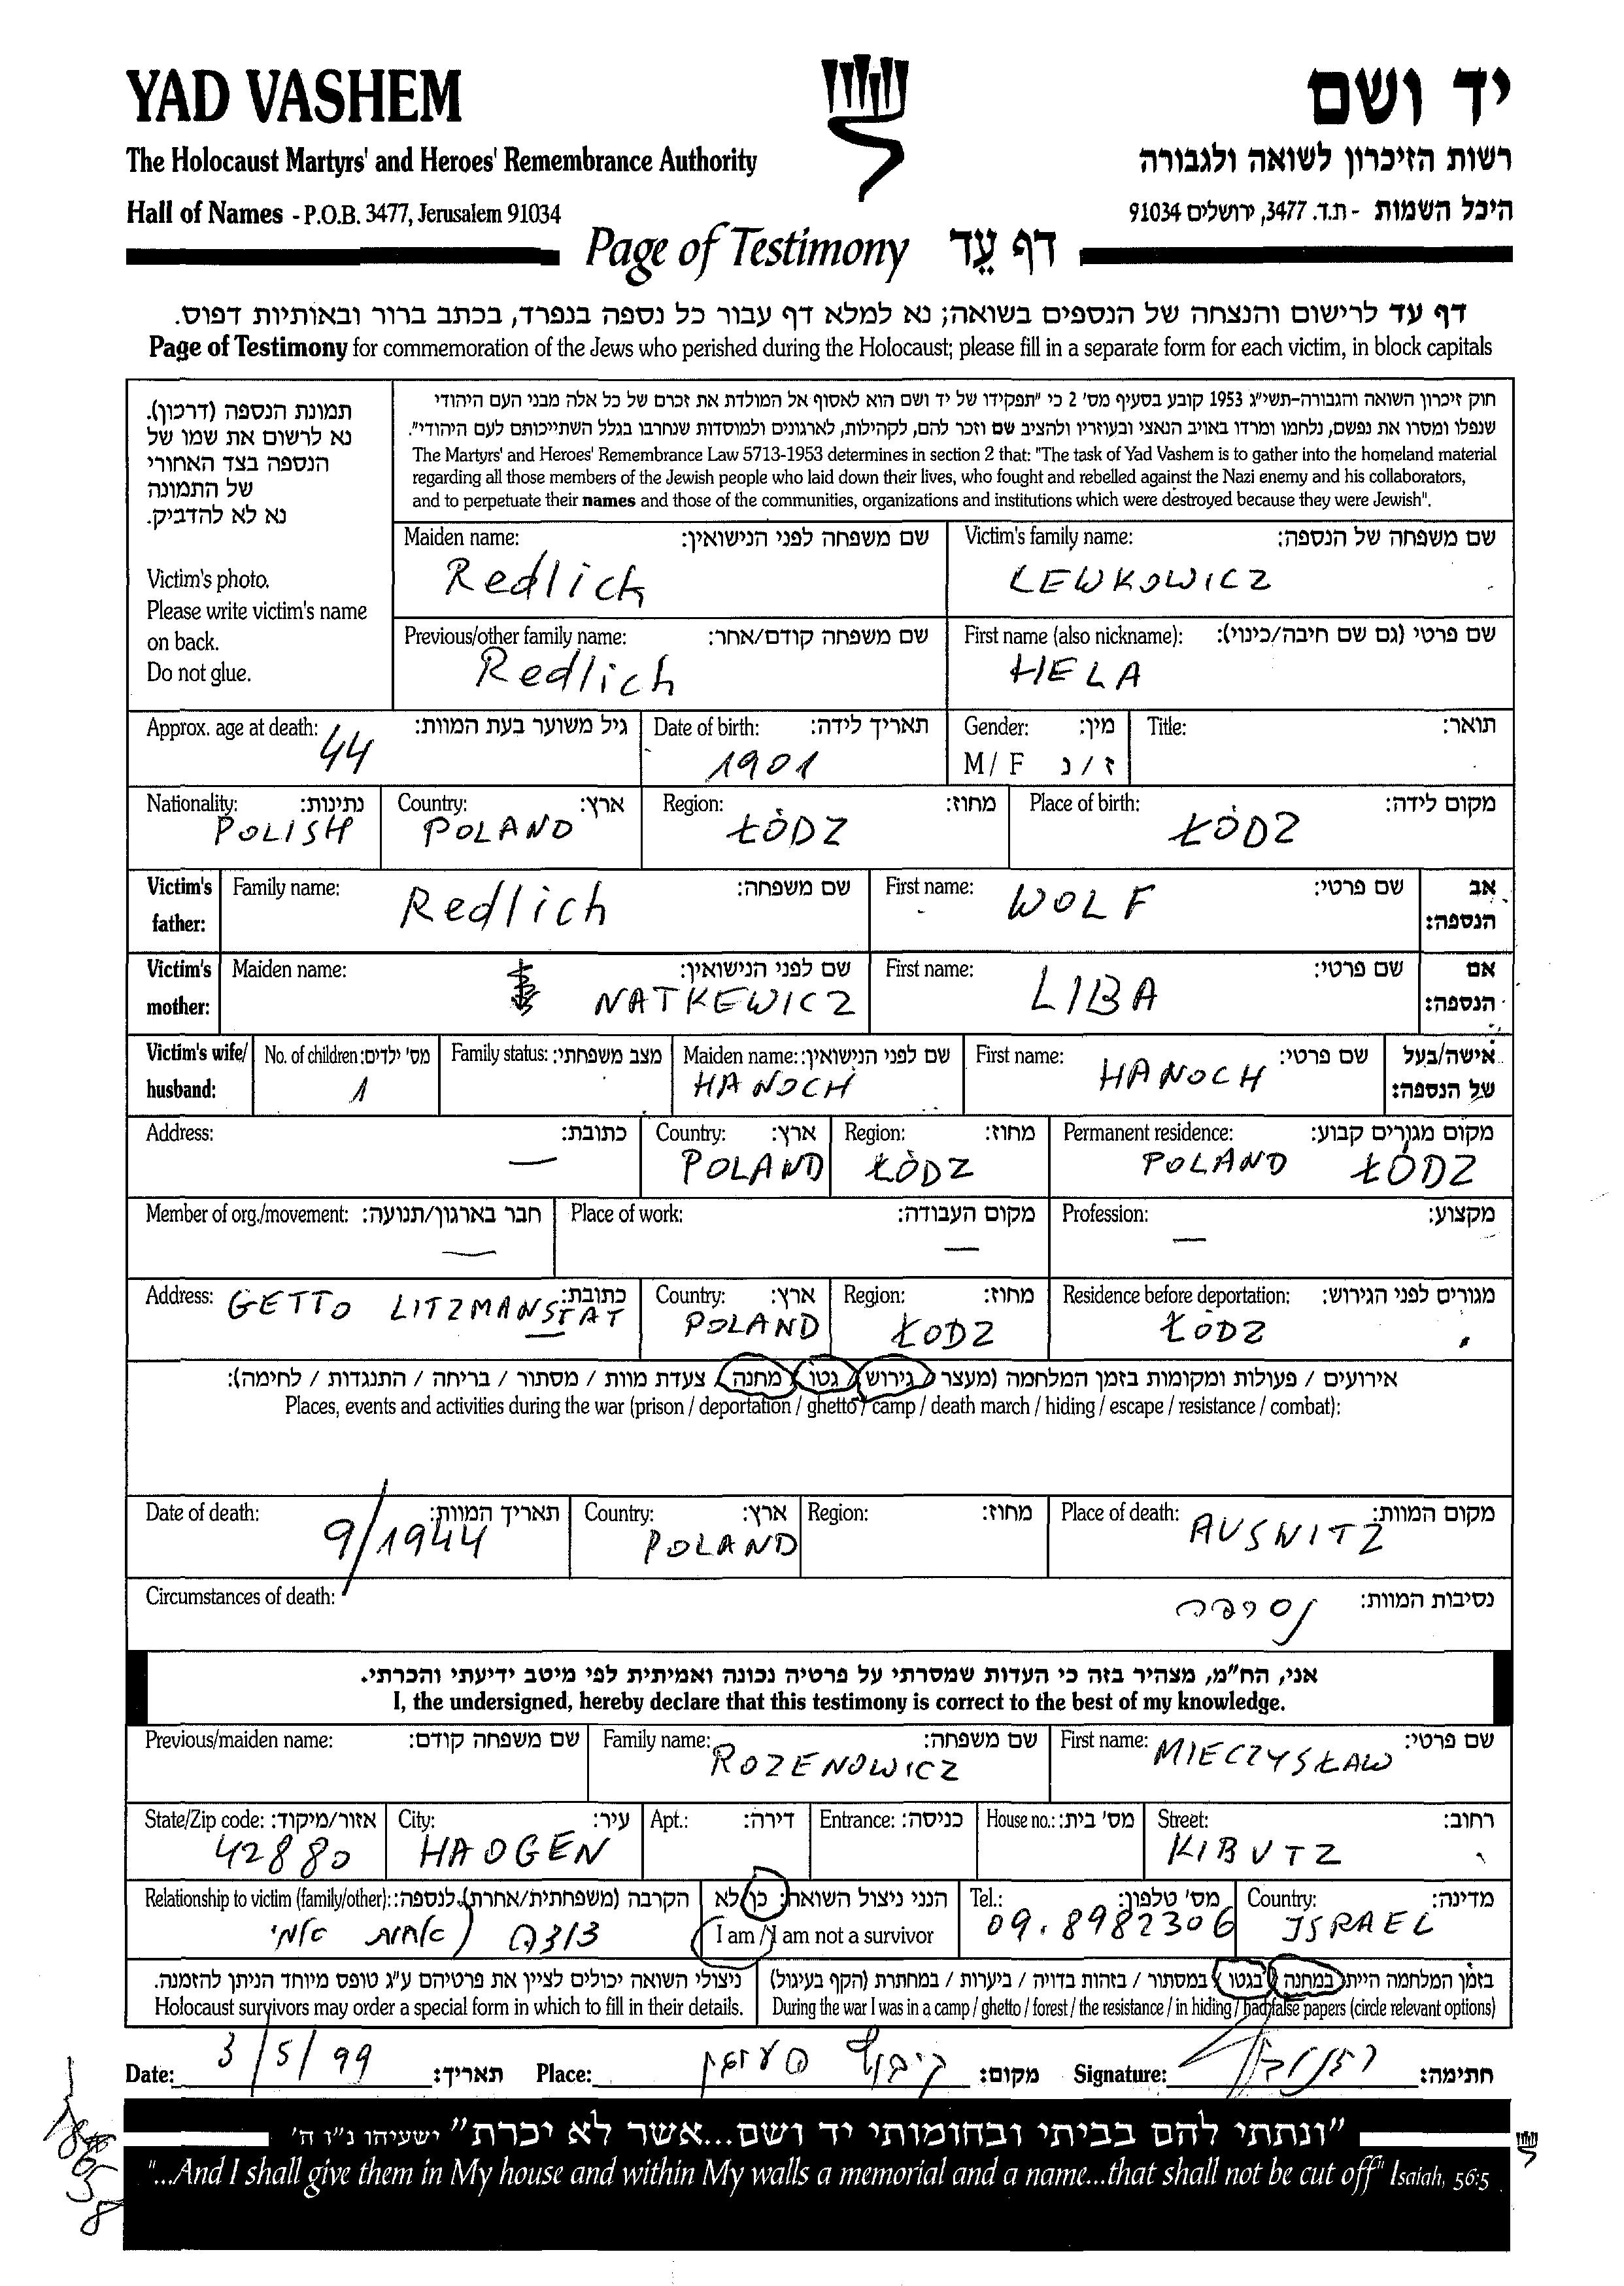 YAD VASHEM
יד ושם
The Holocaust Martyrs' and Heroes' Remembrance Authority
רשות הזיכרון לשואה ולגבורה
Hall of Names - P.O.B. 3477, Jerusalem 91034
היכל השמות - ת.ד. 3477, ירושלים 91034
Page of Testimony דף עֵד
דף עד לרישום והנצחה של הנספים בשואה; נא למלא דף עבור כל נספה בנפרד, בכתב ברור ובאותיות דפוס.
Page of Testimony for commemoration of the Jews who perished during the Holocaust; please fill in a separate form for each victim, in block capitals
תמונת הנספה (דרכון).
נא לרשום את שמו של
הנספה בצד האחורי
של התמונה
נא לא להדביק.
Victim's photo.
Please write victim's name
on back.
Do not glue.
חוק זיכרון השואה והגבורה-תשי"ג 1953 קובע בסעיף מס' 2 כי "תפקידו של יד ושם הוא לאסוף אל המולדת את זכרם של כל אלה מבני העם היהודי
שנפלו ומסרו את נפשם, נלחמו ומרדו באויב הנאצי ובעוזריו ולהציב שם וזכר להם, לקהילות, לארגונים ולמוסדות שנחרבו בגלל השתייכותם לעם היהודי".
The Martyrs' and Heroes' Remembrance Law 5713-1953 determines in section 2 that: "The task of Yad Vashem is to gather into the homeland material
regarding all those members of the Jewish people who laid down their lives, who fought and rebelled against the Nazi enemy and his collaborators,
and to perpetuate their names and those of the communities, organizations and institutions which were destroyed because they were Jewish".
Maiden name: שם משפחה לפני הנישואין: Victim's family name: שם משפחה של הנספה:
Redlich LEWKOWICZ
Previous/other family name: שם משפחה קודם/אחר: First name (also nickname): שם פרטי (גם שם חיבה/כינוי):
Redlich HELA
Approx. age at death: גיל משוער בעת המוות: Date of birth: תאריך לידה: Gender: מין: Title: תואר:
44 1901 M / F ז / נ
Nationality: נתינות: Country: ארץ: Region: מחוז: Place of birth: מקום לידה:
POLISH POLAND ŁÓDZ ŁÓDZ
Victim's father: Family name: שם משפחה: First name: שם פרטי: אב הנספה:
Redlich WOLF
Victim's mother: Maiden name: שם לפני הנישואין: First name: שם פרטי: אם הנספה:
NATKEWICZ LIBA
Victim's wife/ husband: No. of children: מס' ילדים: Family status: מצב משפחתי: Maiden name: שם לפני הנישואין: First name: שם פרטי: אישה/בעל של הנספה:
1 HANOCH HANOCH
Address: כתובת: Country: ארץ: Region: מחוז: Permanent residence: מקום מגורים קבוע:
— POLAND ŁÓDZ POLAND ŁÓDZ
Member of org./movement: חבר בארגון/תנועה: Place of work: מקום העבודה: Profession: מקצוע:
— — —
Address: כתובת: Country: ארץ: Region: מחוז: Residence before deportation: מגורים לפני הגירוש:
GETTO LITZMANSTAT POLAND ŁODZ ŁÓDZ
אירועים / פעולות ומקומות בזמן המלחמה (מעצר / גירוש / גטו / מחנה / צעדת מוות / מסתור / בריחה / התנגדות / לחימה):
Places, events and activities during the war (prison / deportation / ghetto / camp / death march / hiding / escape / resistance / combat):
Date of death: תאריך המוות: Country: ארץ: Region: מחוז: Place of death: מקום המוות:
9/1944 POLAND AUSWITZ
Circumstances of death: נסיבות המוות:
נספתה
אני, הח"מ, מצהיר בזה כי העדות שמסרתי על פרטיה נכונה ואמיתית לפי מיטב ידיעתי והכרתי.
I, the undersigned, hereby declare that this testimony is correct to the best of my knowledge.
Previous/maiden name: שם משפחה קודם: Family name: שם משפחה: First name: שם פרטי:
ROZENOWICZ MIECZYSŁAW
State/Zip code: אזור/מיקוד: City: עיר: Apt.: דירה: Entrance: כניסה: House no.: מס' בית: Street: רחוב:
42880 HAOGEN KIBUTZ
Relationship to victim (family/other): הקרבה (משפחתית/אחרת) לנספה: הנני ניצול השואה: כן/לא Tel.: מס' טלפון: Country: מדינה:
דודה (אחות אמי I am / I am not a survivor 09.8982306 ISRAEL
ניצולי השואה יכולים לציין את פרטיהם ע"ג טופס מיוחד הניתן להזמנה. בזמן המלחמה הייתי במחנה / בגטו / במסתור / בזהות בדויה / ביערות / במחתרת (הקף בעיגול)
Holocaust survivors may order a special form in which to fill in their details. During the war I was in a camp / ghetto / forest / the resistance / in hiding / had false papers (circle relevant options)
Date: 3/5/99 תאריך: Place: קיבוץ העוגן מקום: Signature: חתימה:
"ונתתי להם בביתי ובחומותי יד ושם...אשר לא יכרת" ישעיהו נ"ו ה'
"...And I shall give them in My house and within My walls a memorial and a name...that shall not be cut off" Isaiah, 56:5